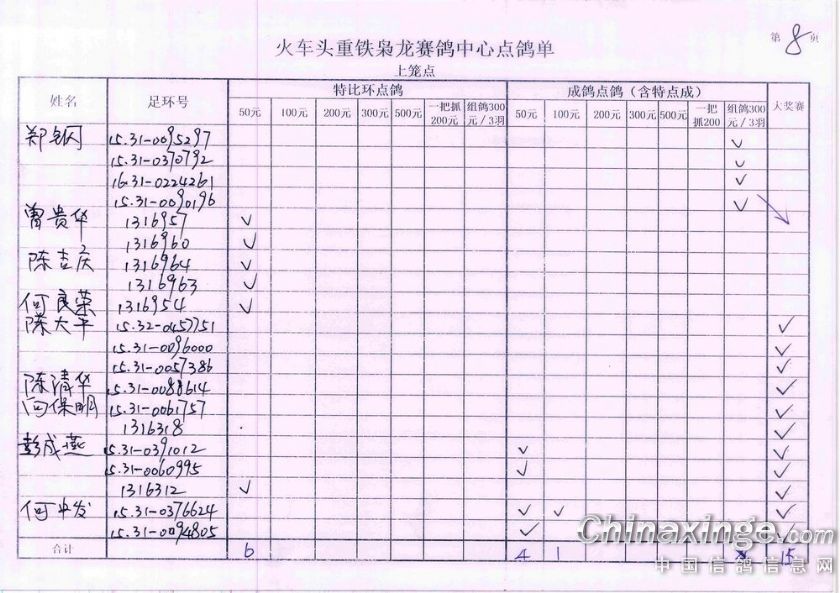 第 8 页
火车头重铁枭龙赛鸽中心点鸽单
上笼点
姓名 足环号 特比环点鸽 成鸽点鸽（含特点成） 大奖赛
50元 100元 200元 300元 500元 一把抓200元 组鸽300元/3羽 50元 100元 200元 300元 500元 一把抓200 组鸽300元/3羽
15.31-0095297 ✓
15.31-0370792 ✓
16.31-0224261 ✓
15.31-0090196 ✓
曾贵华 1316957 ✓
1316960 ✓
陈吉庆 1316964 ✓
1316963 ✓
何良荣 1316954 ✓
陈大平 15.32-0457751 ✓
15.31-0096000 ✓
15.31-0057386 ✓
陈清华 15.31-0088614 ✓
向保明 15.31-0061757 ✓
1316318 ✓
彭成燕 15.31-0391012 ✓ ✓
15.31-0060995 ✓ ✓
1316312 ✓ ✓
何中发 15.31-0376624 ✓ ✓ ✓
15.31-0094805 ✓ ✓
合计 6 4 1 15
Chinaxinge.com
中国信鸽信息网